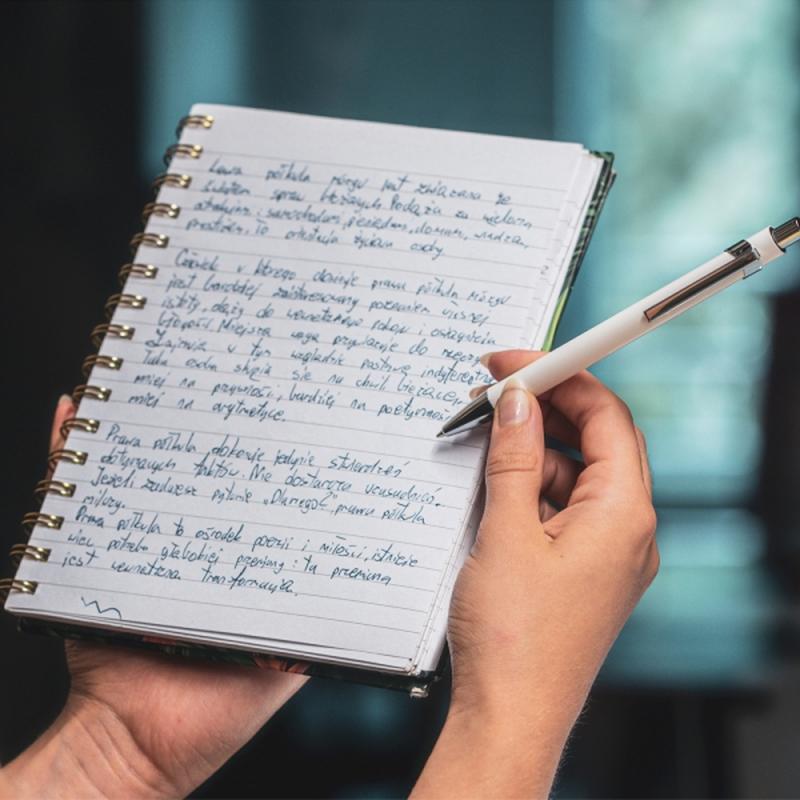 Lewa półkula mózgu jest związana ze
światem spraw bieżących. Podąża za wieloma
atrakcjami: samochodami, pieniędzmi, domami, władzą,
prestiżem. To orientacja życiowa osoby
Człowiek w którego dominuje prawa półkula mózgu
jest bardziej zainteresowany poznaniem własnej
istoty, dąży do wewnętrznego pokoju i osiągnięcia
błogości. Mniejszą wagę przywiązuje do rzeczy.
Zajmuje w tym względzie postawę indyferentną
Taka osoba skupia się na chwili bieżącej,
mniej na przyszłości, bardziej na poetyczności
mniej na arytmetyce.
Prawa półkula dokonuje jedynie stwierdzeń
dotyczących faktów. Nie dostarcza uzasadnień.
Jeżeli zadajesz pytanie „Dlaczego?”, prawa półkula
milczy.
Prawa półkula to ośrodek poezji i miłości, istnieje
więc potrzeba głębokiej przemiany i ta przemiana
jest wewnętrzna transformacja.